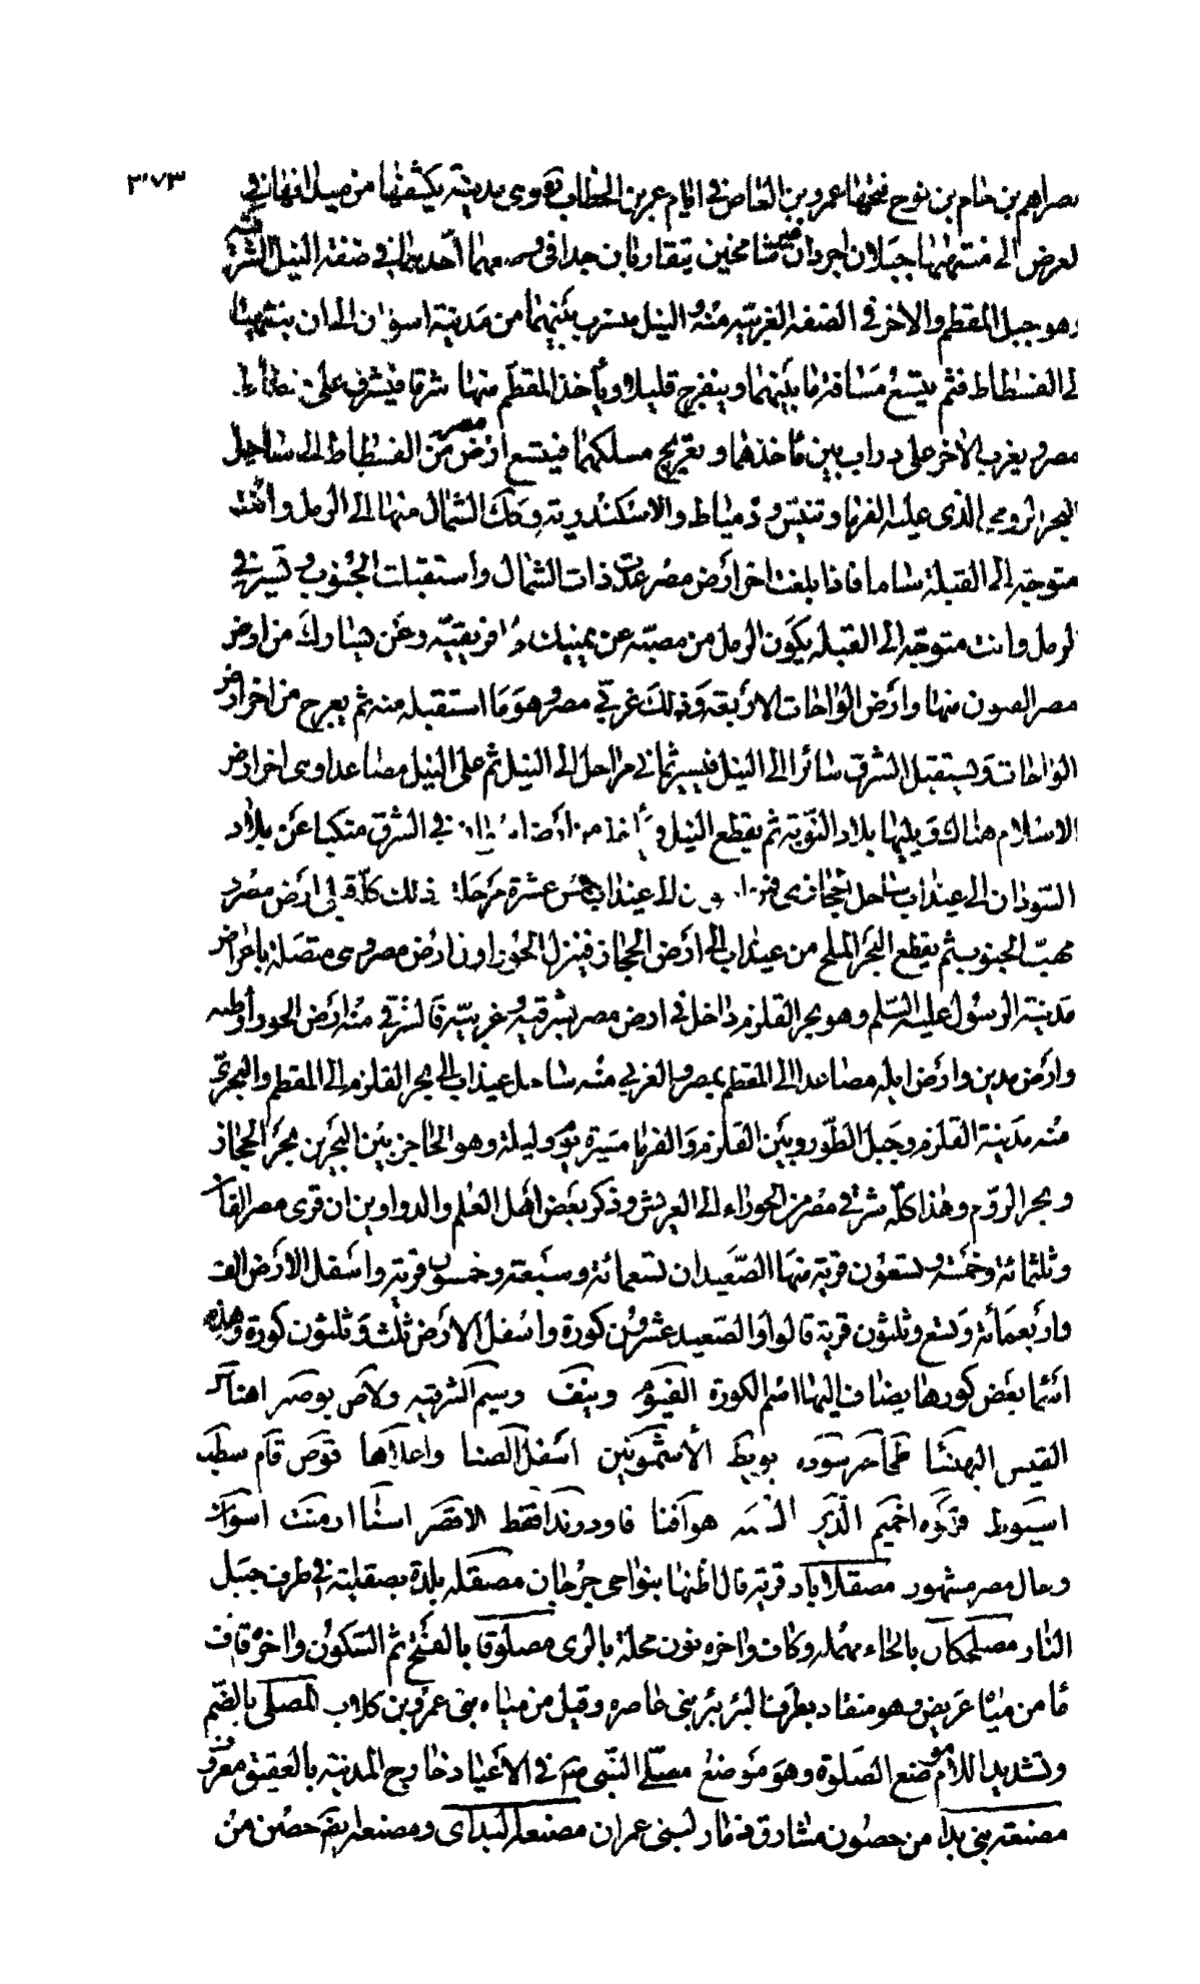 ٣٧٣
مصرايم بن حام بن نوح فتحها عمرو بن العاص في ايام عمر بن الخطاب وهي مدينة يكتنفها من مبداها في
العرض الى منتهاها جبلان اجردان غير شامخين يتقاربان جدا في وضعهما احدهما في ضفة النيل الشرقية
وهو جبل المقطم والاخر في الضفة الغربية منه والنيل منسرب بينهما من مدينة اسوان الى ان ينتهيا
الى الفسطاط فثم يتسع مسافة ما بينهما وينفرج قليلا ويأخذ المقطم منها شرقا فيشرف على فسطاط
مصر ويغرب الاخر على وراب بين مأخذهما وتعريج مسلكهما فيتسع ارض مصر من الفسطاط الى ساحل
البحر الرومي الذي عليه الفرما وتنيس ودمياط والاسكندرية ومهب الشمال منها الى الرمل وانت
متوجه الى القبلة شاما فاذا بلغت اخر ارض مصر عدت ذات الشمال واستقبلت الجنوب وتسير في
الرمل وانت متوجه الى القبلة يكون الرمل من مصبه عن يمينك الى افريقية وعن يسارك من ارض
مصر الفيوم منها وارض الواحات الاربعة وذلك غربي مصر وهو ما استقبله منه ثم يعرج من اخر ارض
الواحات ويستقبل الشرق سائرا الى النيل فيسير ثماني مراحل الى النيل ثم على النيل مصاعدا وهي اخر ارض
الاسلام هناك ويليها بلاد النوبة ثم يقطع النيل ويأخذ من ارض اسوان في الشرق متنكبا عن بلاد
السودان الى عيذاب ساحل الحجازي فمن اسوان الى عيذاب خمس عشرة مرحلة ذلك كله قبلي ارض مصر و
مهب الجنوب ثم يقطع البحر الملح من عيذاب الى ارض الحجاز فينزل الحوراء اول ارض مصر وهي متصلة باعراض
مدينة الرسول عليه السلم وهو بحر القلزم داخل في ارض مصر بشرقيه وغربيه فالشرقي منه ارض الحوراء وطبه
وارض مدين وارض ايلة مصاعدا الى المقطم بمصر والغربي منه ساحل عيذاب الى بحر القلزم الى المقطم والبحري
منه مدينة القلزم وجبل الطور وبين القلزم والفرما مسيرة يوم وليلة وهو الحاجز بين البحرين بحر الحجاز
وبحر الروم وهذا كله شرقي مصر من الحوراء الى العريش وذكر بعض اهل العلم والدواوين ان قرى مصر الفان
وثلثمائة وخمسة وتسعون قرية منها الصعيدان تسعمائة وسبعة وخمسون قرية واسفل الارض الف
واربعمائة وتسع وثلثون قرية قالوا والصعيد عشرون كورة واسفل الارض ثلث وثلثون كورة وهذه
اسما بعض كورها يضاف اليها اسم الكورة الفيوم ومنف وسيم الشرقية ودلاص بوصير اهناس
القيس البهنسا طحا حيز سنوده بويط الاشمونين اسفل انصنا واعلاها قوص قام شطب
اسيوط قهقوه اخميم الدير هو اقنا فاو دندرا قفط الاقصر اسنا ارمنت اسوان
وحال مصر مشهور مصقلاباد قرية قال اظنها بنواحي جرجان مصقلة بلدة بصقلية في طرف جبل
النار مصلحكان بالحاء مهملة وكاف واخره نون محلة بالري مصلوق بالفتح ثم السكون واخره قاف
ماء من مياه عريض وهو منقاد بطرف النير نير بني غاضرة وقيل من مياه بني عمرو بن كلاب المصلى بالضم
وتشديد اللام موضع الصلوة وهو موضع مصلى النبي صلعم في الاعياد خارج المدينة بالعقيق معروف
مصنعة بني بدا من حصون مشارق ذمار لبني عمران مصنعة لبداي ومصنعة ايضا حصن من